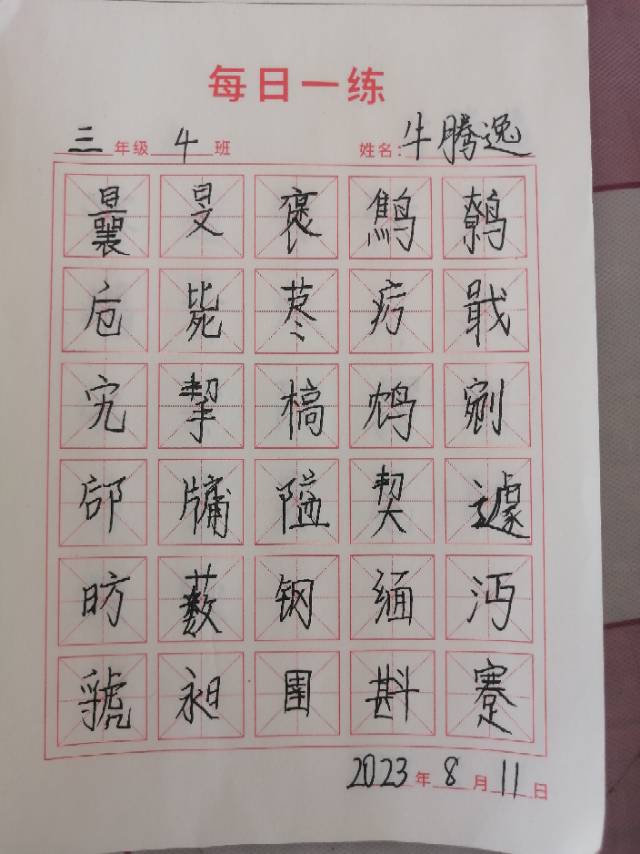 每日一练
三年级 4 班 姓名：牛腾逸
曩 旻 褒 鹪 鹩
卮 毙 荩 疠 戢
宄 挈 槁 鸩 剜
郈 牖 隘 契 遽
昉 薮 钢 缅 沔
虢 昶 斟 蹇
2023年8月11日